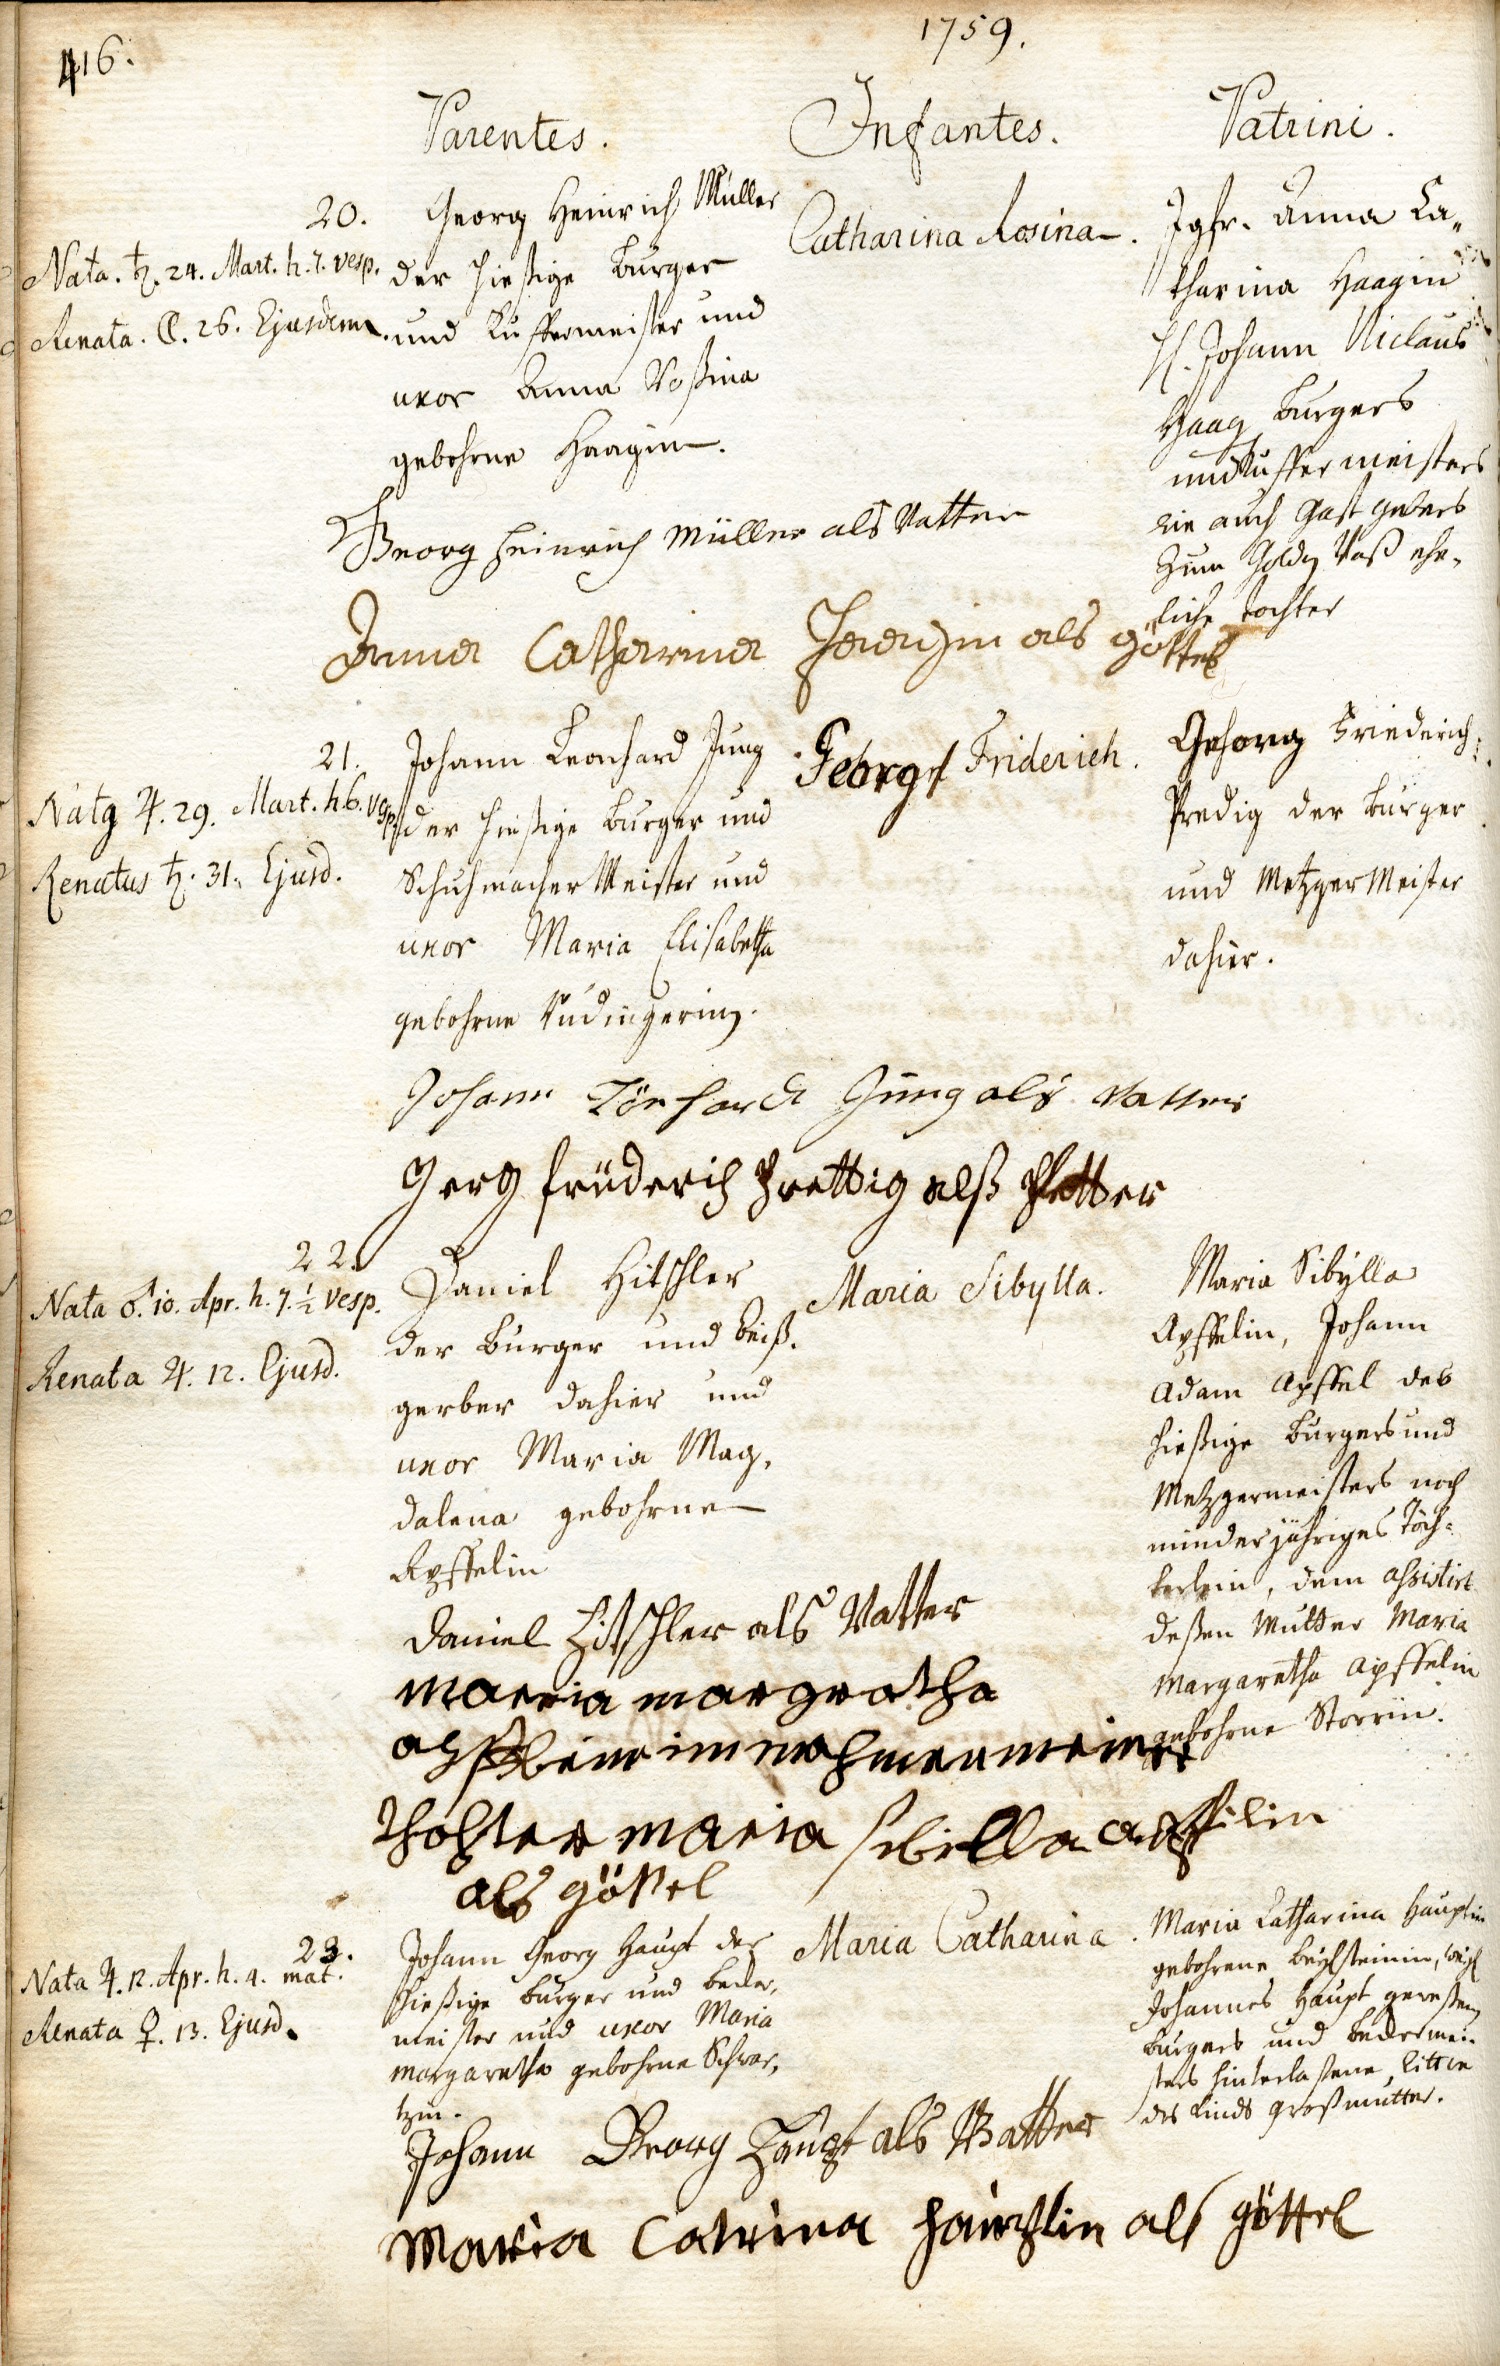 416.
1759.
Parentes.
Infantes.
Patrini.
20.
Nata. ♄. 24. Mart. h. 7. vesp.
Renata. ☾. 26. Ejusdem.
Georg Heinrich Müller
der hießige Burger
und Kuffermeister und
uxor Anna Roßina
gebohrne Haagin.
Catharina Rosina.
Jgfr. Anna Ca„
tharina Haagin
H. Johann Niclaus
Haag Burgers
und Kuffermeisters
wie auch Gastgebers
zum Goldn Roß ehe„
liche Tochter
Georg Heinrich Müller als Vatter
Anna Catharina Haagin als göttel
21.
♃. 29. Mart. h. 6. vesp.
Renatus ♄. 31. Ejusd.
Johann Leonhard Jung
der hießige Burger und
Schuhmacher Meister und
uxor Maria Elisabetha
gebohrne Rüdingerin.
Georg Friderich.
Georg Friederich
Predig der Burger
und Metzger Meister
dahier.
Johann Lönhardt Jung als Vatter
Gerg früderich Prettig alß Pfetter
22.
Nata ♂. 10. Apr. h. 7. ½ vesp.
Renata ♃. 12. Ejusd.
Daniel Hitschler
der Burger und Weiß„
gerber dahier und
uxor Maria Mag„
dalena gebohrne
Apffelin
Maria Sibylla.
Maria Sibylla
Apffelin, Johann
Adam Apffel des
hießige Burgers und
Metzgermeisters noch
minderjähriges Töch=
terlein, dem assistirt
deßen Mutter Maria
Margaretha Apffelin
gebohrne Storrin.
Daniel Hitschler als Vatter
Marria margretha
apffelin im nahmen meiner
thochter maria sibilla apffilin
als göttel
23.
Nata ♃. 12. Apr. h. 4. mat.
Renata ♀. 13. Ejusd.
Johann Georg Haupt der
hießige Burger und Becker„
meister und uxor Maria
Margaretha gebohrne Schwar„
tzin.
Maria Catharina.
Maria Catharina Hauptin
gebohrene Beylsteinin, weyl
Johannes Haupt geweßen
Burgers und Beckermei„
sters hinterlaßene Wittib
des Kinds Großmutter.
Johann Georg Haupt als Vatter
Maria Catrina hauptin als göttel